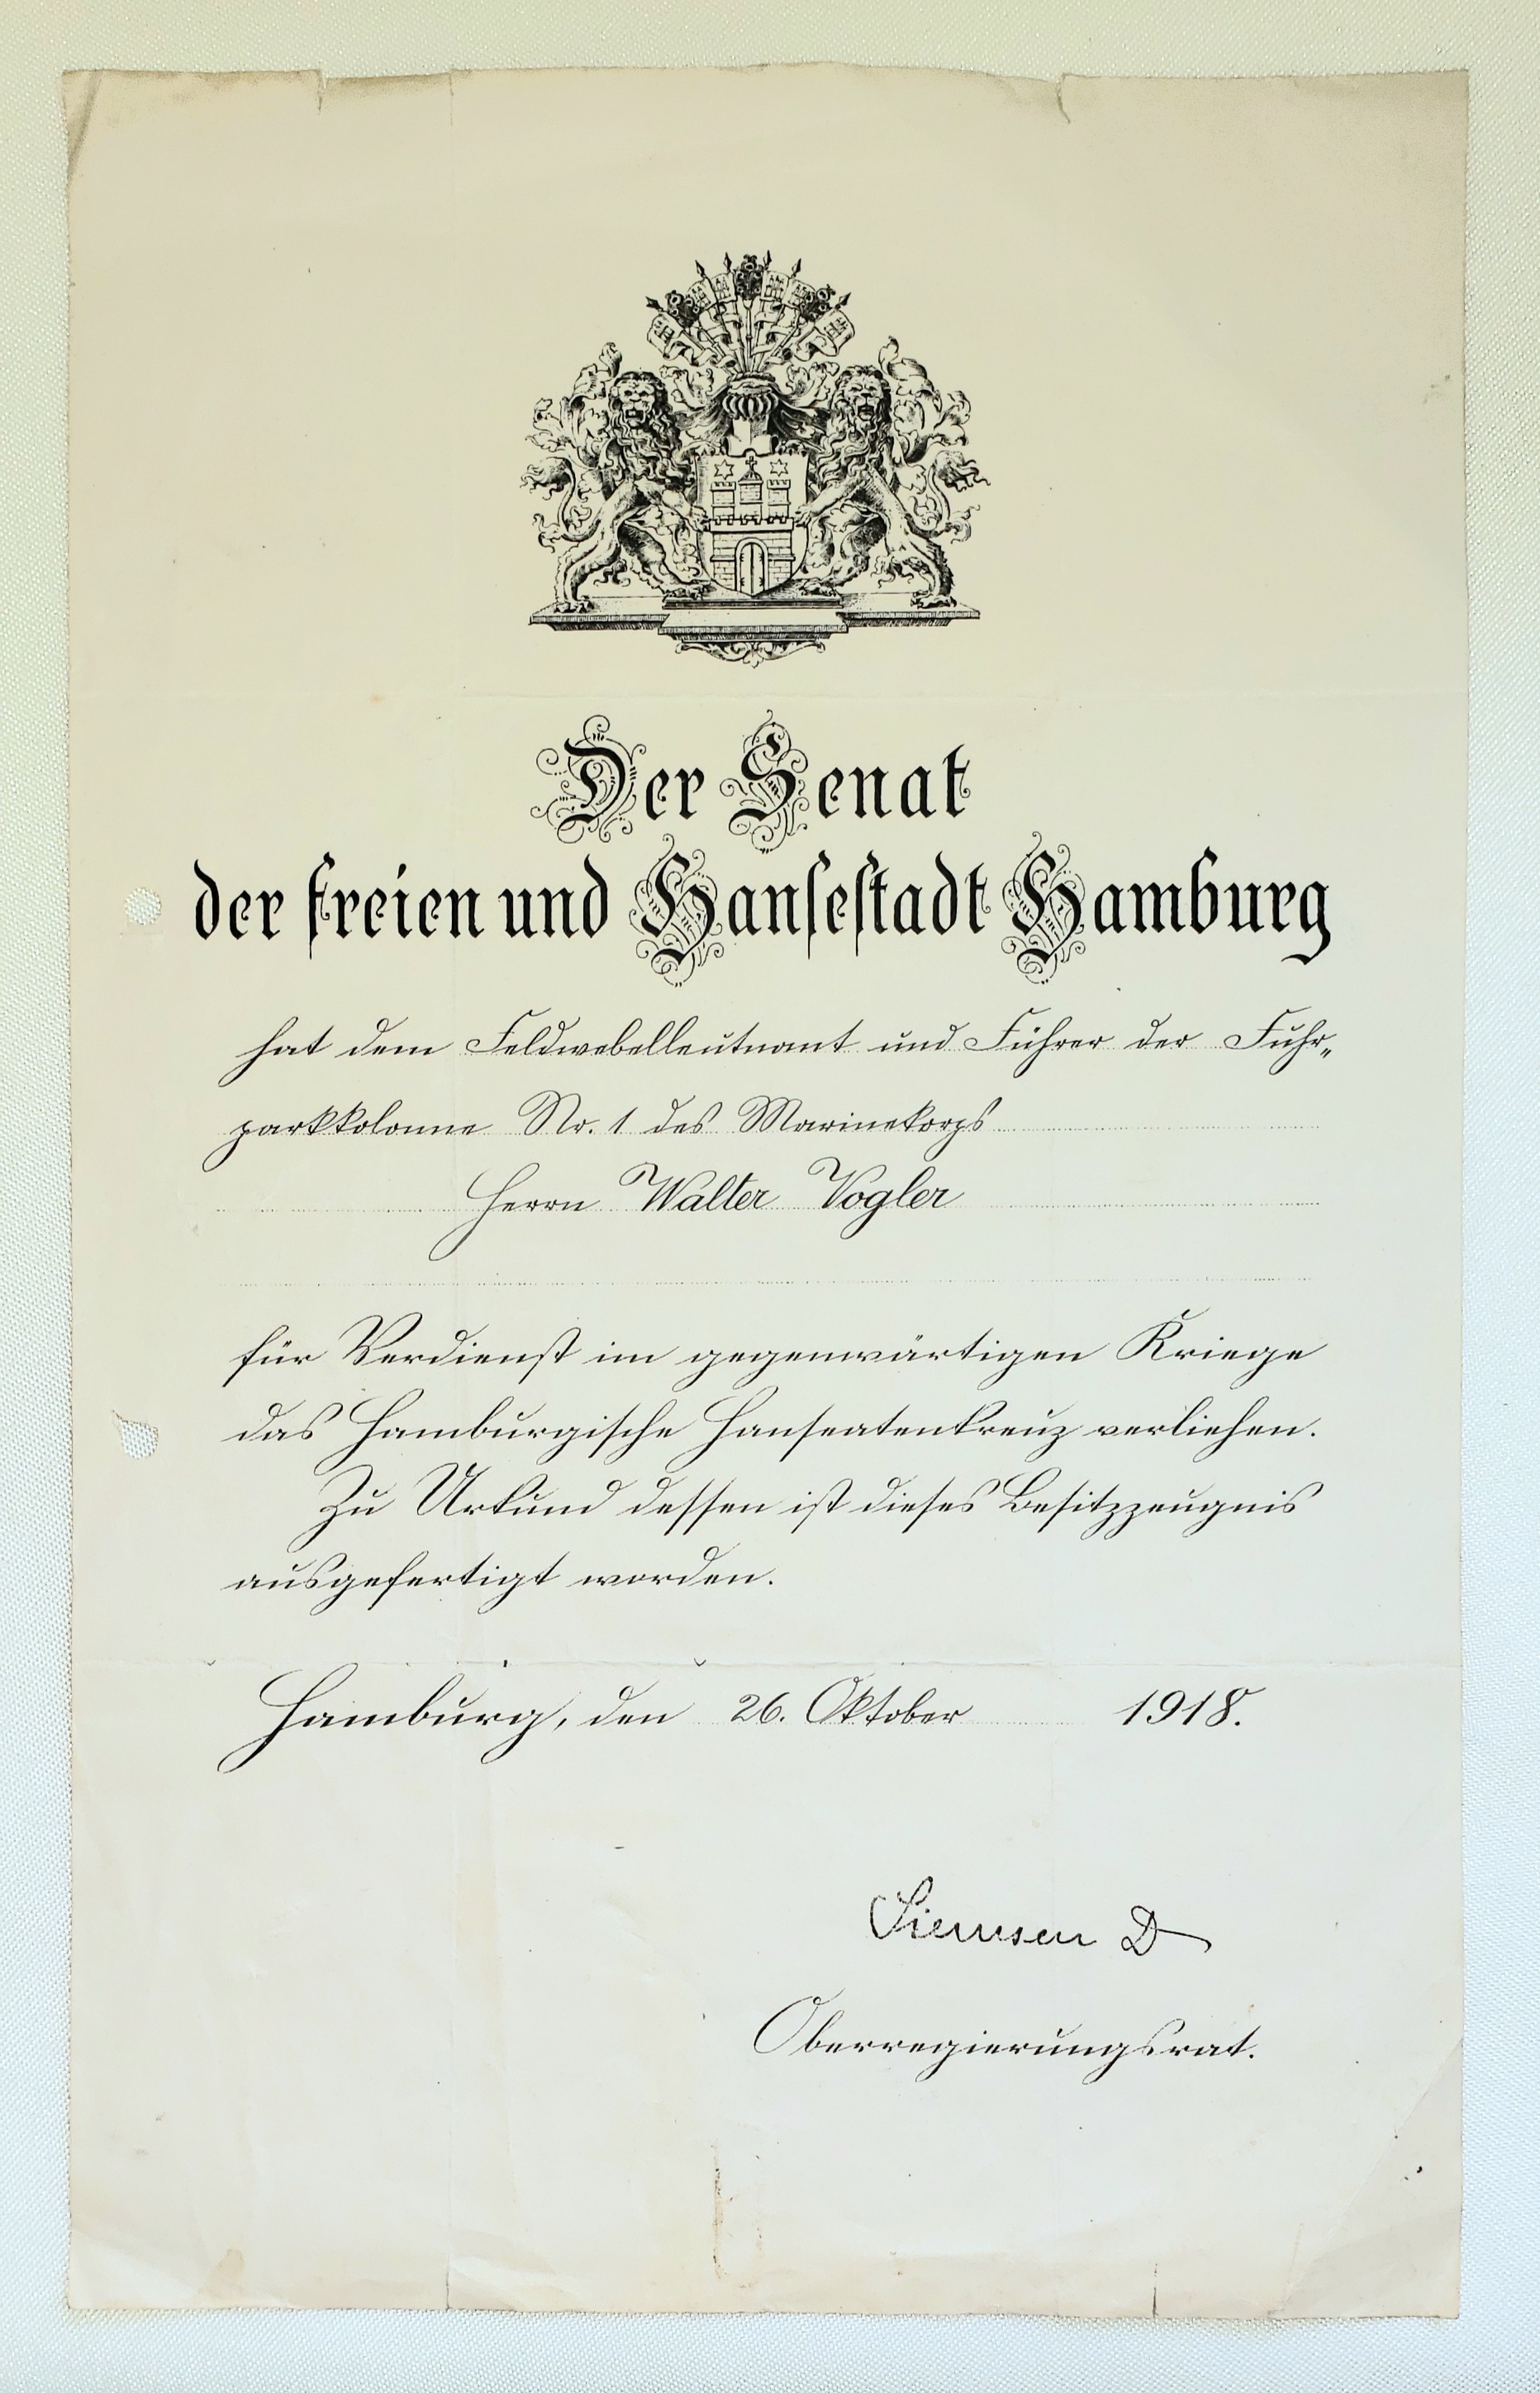 Der Senat
der freien und Hansestadt Hamburg
hat dem Feldwebelleutnant und Führer der Fuhr-
parkkolonne Nr. 1 des Marinekorps
Herrn Walter Vogler
für Verdienst im gegenwärtigen Kriege
das Hamburgische Hanseatenkreuz verliehen.
Zu Urkund dessen ist dieses Besitzzeugnis
ausgefertigt worden.
Hamburg, den 26. Oktober 1918.
Siemsen D
Oberregierungsrat.